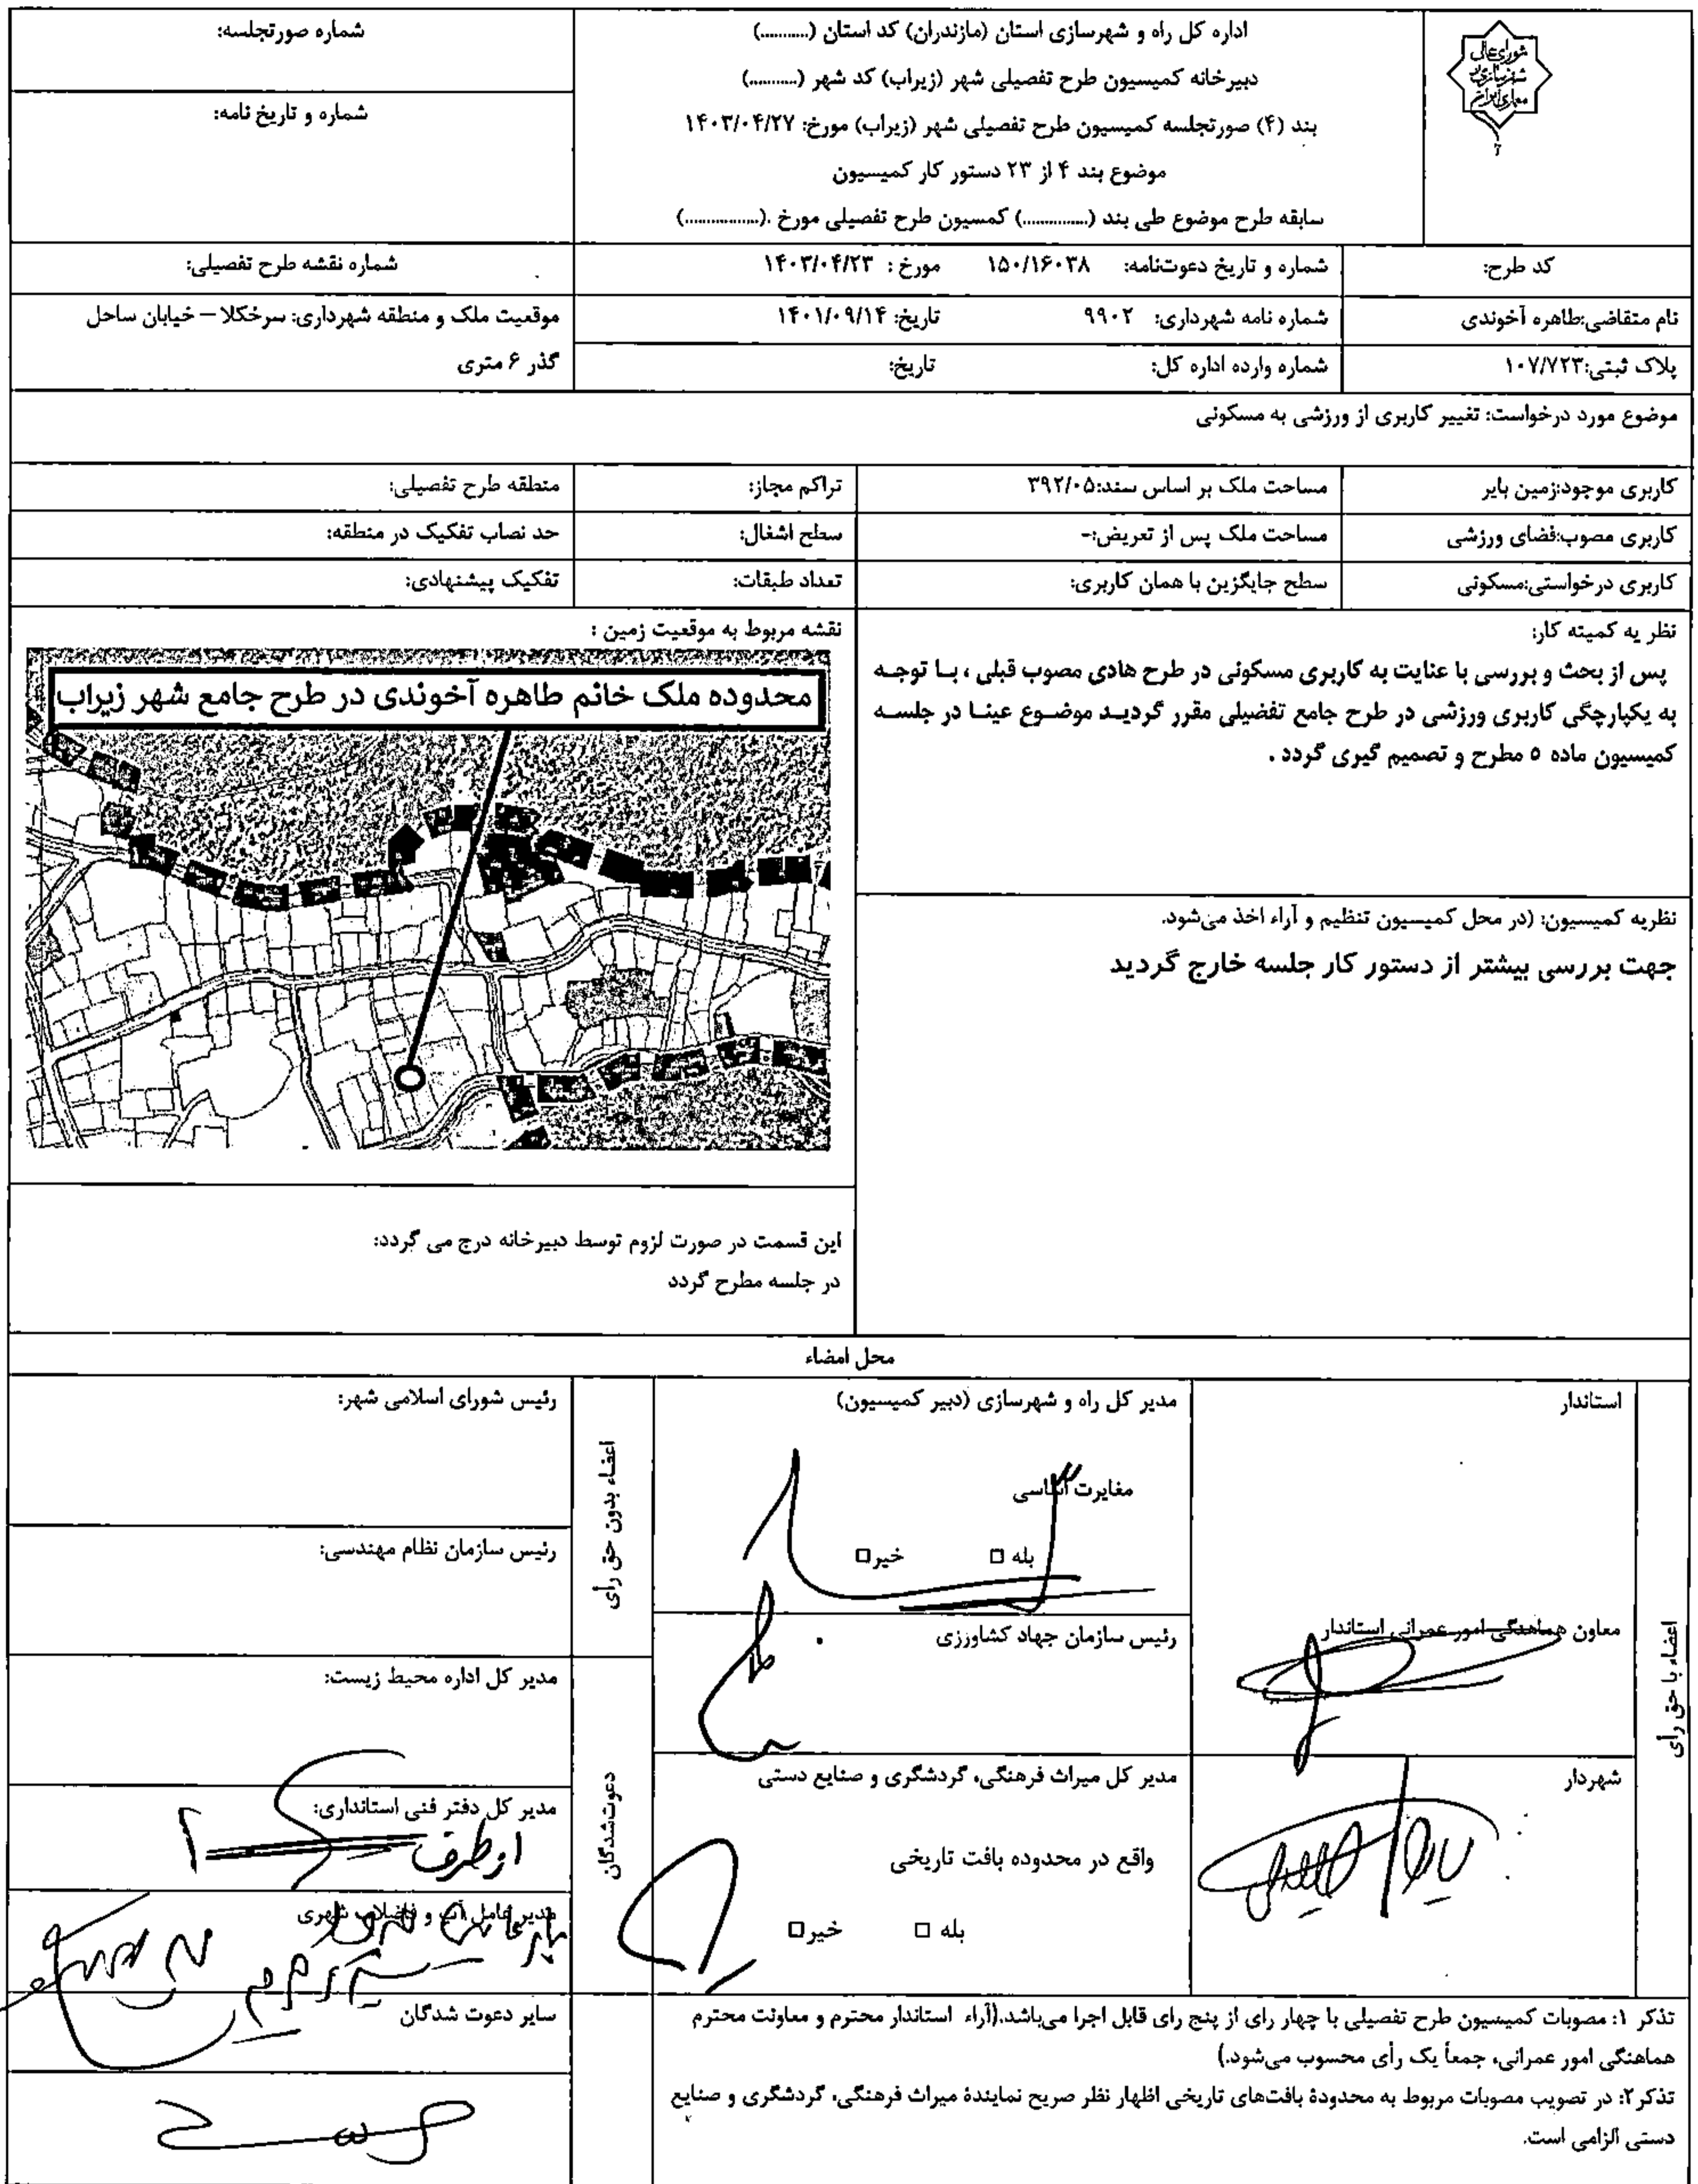 شورای عالی
شهرسازی و
معماری ایران
اداره کل راه و شهرسازی استان (مازندران) کد استان (...........)
دبیرخانه کمیسیون طرح تفصیلی شهر (زیراب) کد شهر (..........)
بند (۴) صورتجلسه کمیسیون طرح تفصیلی شهر (زیراب) مورخ: ۱۴۰۳/۰۴/۲۷
موضوع بند ۴ از ۲۳ دستور کار کمیسیون
سابقه طرح موضوع طی بند (...............) کمسیون طرح تفصیلی مورخ .(.................)
شماره صورتجلسه:
شماره و تاریخ نامه:
کد طرح:
شماره و تاریخ دعوت‌نامه: ۱۵۰/۱۶۰۳۸ مورخ : ۱۴۰۳/۰۴/۲۳
شماره نقشه طرح تفصیلی:
نام متقاضی:طاهره آخوندی
شماره نامه شهرداری: ۹۹۰۲ تاریخ: ۱۴۰۱/۰۹/۱۴
موقعیت ملک و منطقه شهرداری: سرخکلا – خیابان ساحل
گذر ۶ متری
پلاک ثبتی:۱۰۷/۷۲۳
شماره وارده اداره کل: تاریخ:
موضوع مورد درخواست: تغییر کاربری از ورزشی به مسکونی
کاربری موجود:زمین بایر
مساحت ملک بر اساس سند:۳۹۲/۰۵
تراکم مجاز:
منطقه طرح تفصیلی:
کاربری مصوب:فضای ورزشی
مساحت ملک پس از تعریض:-
سطح اشغال:
حد نصاب تفکیک در منطقه:
کاربری درخواستی:مسکونی
سطح جایگزین با همان کاربری:
تعداد طبقات:
تفکیک پیشنهادی:
نظر یه کمیته کار:
پس از بحث و بررسی با عنایت به کاربری مسکونی در طرح هادی مصوب قبلی ، با توجه
به یکپارچگی کاربری ورزشی در طرح جامع تفضیلی مقرر گردید موضوع عینا در جلسه
کمیسیون ماده ۵ مطرح و تصمیم گیری گردد .
نقشه مربوط به موقعیت زمین :
محدوده ملک خانم طاهره آخوندی در طرح جامع شهر زیراب
نظریه کمیسیون: (در محل کمیسیون تنظیم و آراء اخذ می‌شود.
جهت بررسی بیشتر از دستور کار جلسه خارج گردید
این قسمت در صورت لزوم توسط دبیرخانه درج می گردد:
در جلسه مطرح گردد
محل امضاء
اعضاء با حق رأی
استاندار
معاون هماهنگی امور عمرانی استاندار
شهردار
مدیر کل راه و شهرسازی (دبیر کمیسیون)
مغایرت اساسی
بله □ خیر□
رئیس سازمان جهاد کشاورزی
مدیر کل میراث فرهنگی، گردشگری و صنایع دستی
واقع در محدوده بافت تاریخی
بله □ خیر□
اعضاء بدون حق رأی
رئیس شورای اسلامی شهر:
رئیس سازمان نظام مهندسی:
دعوت‌شدگان
مدیر کل اداره محیط زیست:
مدیر کل دفتر فنی استانداری:
از طرف
مدیر عامل آب و فاضلاب شهری
سایر دعوت شدگان
تذکر ۱: مصوبات کمیسیون طرح تفصیلی با چهار رای از پنج رای قابل اجرا می‌باشد.(آراء استاندار محترم و معاونت محترم
هماهنگی امور عمرانی، جمعاً یک رأی محسوب می‌شود.)
تذکر ۲: در تصویب مصوبات مربوط به محدودۀ بافت‌های تاریخی اظهار نظر صریح نمایندۀ میراث فرهنگی، گردشگری و صنایع
دستی الزامی است.